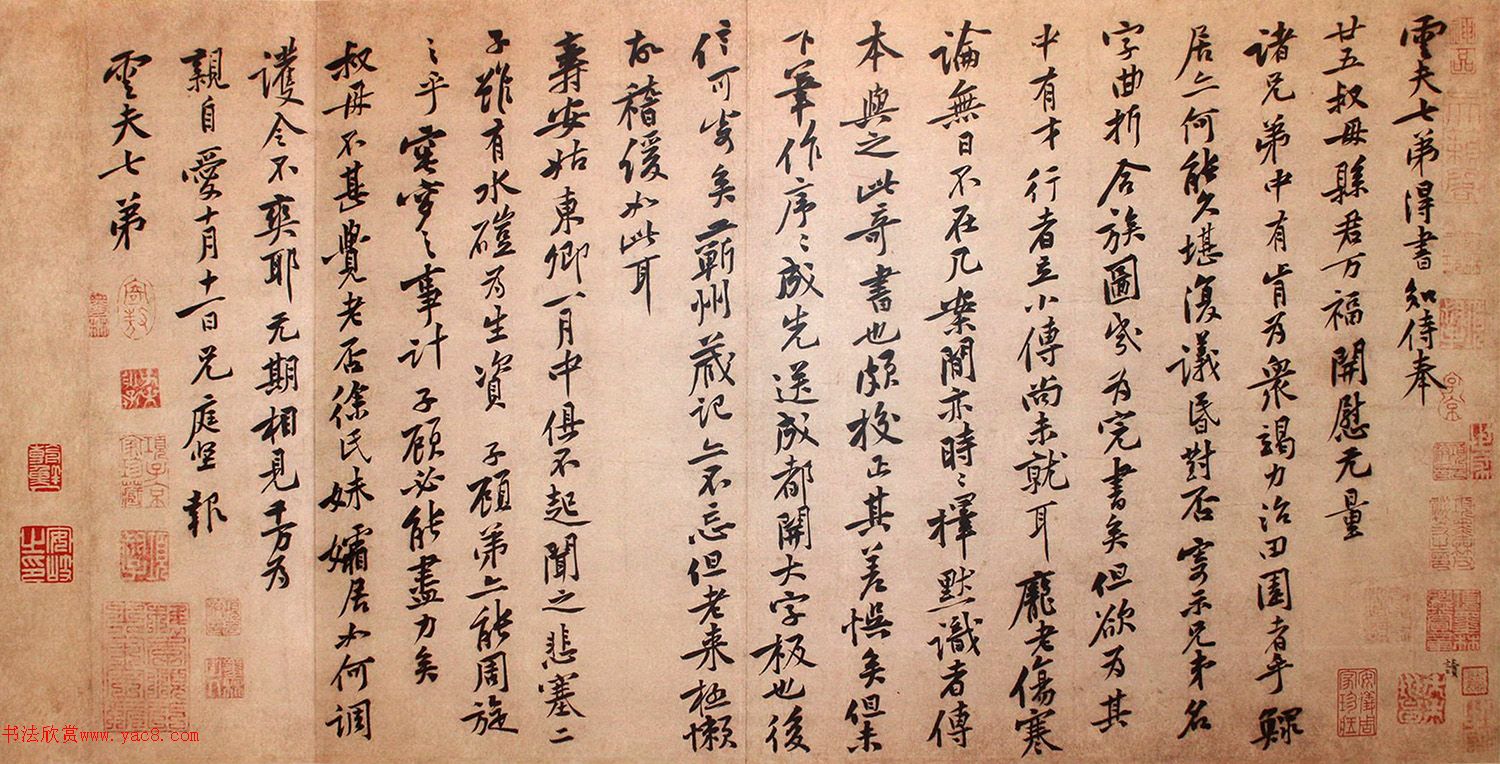 雲夫七弟得書知侍奉
廿五叔母縣君万福開慰无量
諸兄弟中有肯為衆竭力治田園者乎鰥
居亦何能久堪復議昏對否寄示兄弟名
字曲折合族圖ミ為完書矣但欲為其
中有才行者立小傳尚未就耳龐老傷寒
論無日不在几案間亦時ミ擇默識者傳
本與之此奇書也頗校正其差悞矣但未
下筆作序ミ成先送成都開大字板也後
信可寄矣蘄州藏記亦不忘但老来極懶
故稽緩如此耳
壽安姑東卿一月中俱不起聞之悲塞二
子雖有水磑為生資子顧弟亦能周旋
之乎窀穸之事計子顧必能盡力矣
叔母不甚覺老否徐氏妹孀居如何調
護令不爽耶无期相見千万為
親自愛十月十一日兄庭坚報
雲夫七弟
讀
书法欣赏www.yac8.com